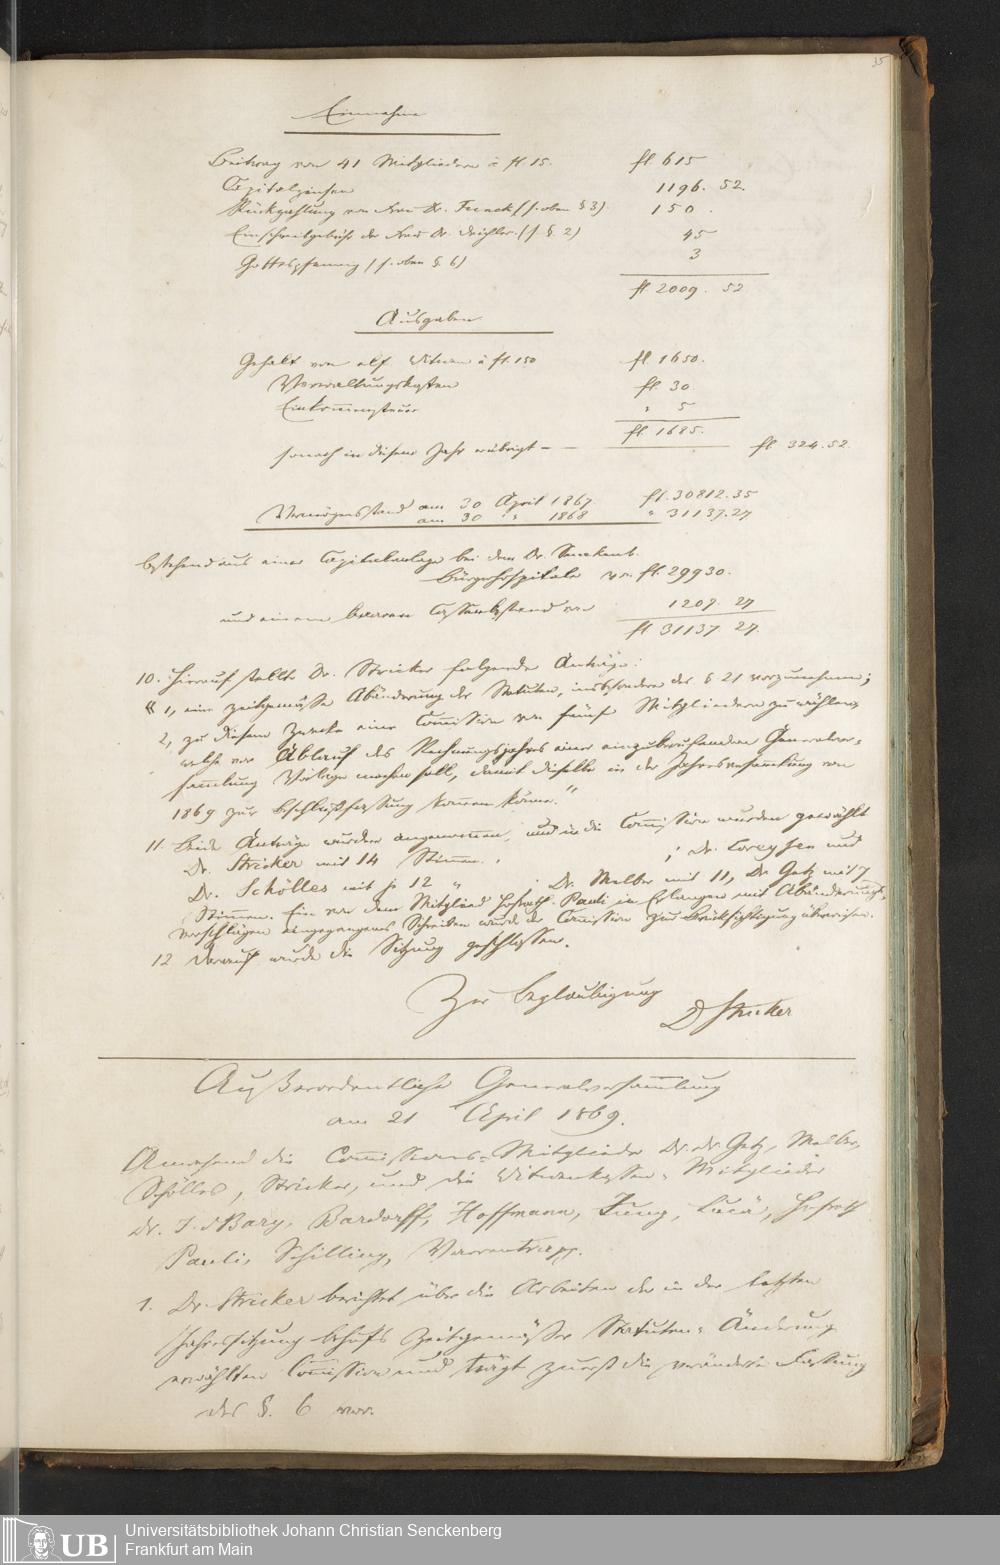 35
Einnahme
Beitrag von 41 Mitgliedern à fl 15. fl. 615
Capitalzinsen 1196. 52.
Rückzahlung von Frau Dr. Funck (s. oben § 3) 150.
Einschreibgebühr des Herrn Dr. (s. §. 2) 45
Gottespfennig (s. oben §. 6) 3
fl. 2009. 52
Ausgaben
Gehalt von elf Witwen à fl. 150 fl. 1650.
Verwaltungskosten fl. 30
Einkommensteuer " 5
fl. 1685.
sonach in diesem Jahr erübrigt — fl. 324. 52.
Vermögensstand am 30 April 1867 fl. 30812. 35
am 30 " 1868 " 31137. 27
bestehend aus einer Capitalanlage bei dem Dr. Senckenb.
Bürgerhospitale von fl. 29930.
und einem baaren Cassenbestand von 1207. 27
fl 31137 27.
10. Hierauf stellte Dr. Stricker folgende Anträge:
„ 1, eine zeitgemäße Abänderung der Statuten, insbesondere des § 21 vorzunehmen;
2, zu diesem Zwecke eine Com̅ission von fünf Mitgliedern zu wählen,
welche vor Ablauf des Rechnungsjahres einer einzuberufenden Generalver-
sam̅lung Vorlage machen soll, damit dieselbe in der Jahresversam̅lung von
1869 zur Beschlußfassung kom̅en könne."
11. Beide Anträge wurden angenom̅en, und in die Com̅ission wurden gewählt
Dr. Stricker mit 14 Stim̅en, ; Dr. Loreyhen und
Dr. Schölles mit je 12 " Dr. Melber mit 11, Dr. Getz mit 7
Stim̅en. Ein von dem Mitglied Hofrath Pauli in Erlangen mit Abänderungs-
vorschlägen eingegangenes Schreiben wurde der Com̅ission zur Berücksichtigung überwiesen.
12 Darauf wurde die Sitzung geschlossen.
Zur Beglaubigung
Dr Stricker
Außerordentliche Generalversam̅lung
am 21 April 1869.
Anwesend die Com̅issions-Mitglieder Dr. Dr. Getz, Melber,
Schölles, Stricker, und die Witwenkassen-Mitglieder
Dr. J. d Bary, Bardorff, Hoffmann, Jung, Lucä, Hofrath
Pauli, Schilling, Varrentrapp.
1. Dr. Stricker berichtet über die Arbeiten der in der letzten
Jahressitzung behufs zeitgemäßer Statuten-Änderung
erwählten Com̅ission und trägt zuerst die veränderte Fassung
des §. 6 vor.
UB
Universitätsbibliothek Johann Christian Senckenberg
Frankfurt am Main